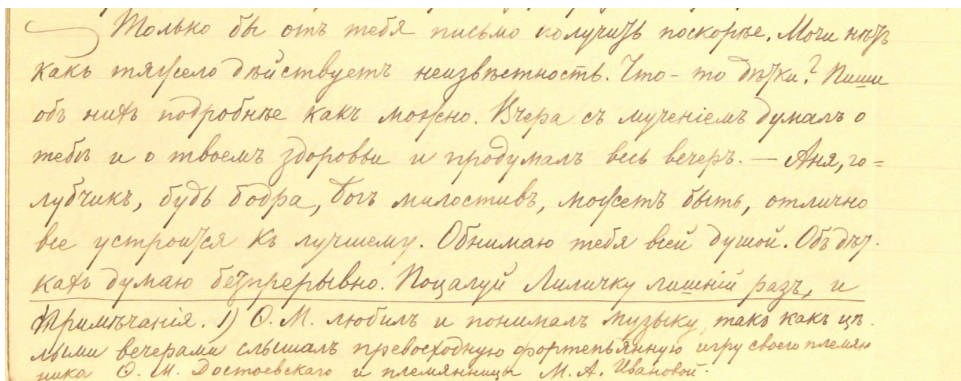 Только бы отъ тебя письмо получить поскорѣе. Мочи нѣтъ
какъ тяжело дѣйствуетъ неизвѣстность. Что-то дѣтки? Пиши
объ нихъ подробнѣе какъ можно. Вчера съ мученіемъ думалъ о
тебѣ и о твоемъ здоровьи и продумалъ весь вечеръ. — Аня, го=
лубчикъ, будь бодра, Богъ милостивъ, можетъ быть, отлично
все устроится къ лучшему. Обнимаю тебя всей душой. Объ дѣт-
кахъ думаю безпрерывно. Поцалуй Лиличку лишній разъ, и
Примѣчанія. 1) Ѳ. М. любилъ и понималъ музыку, такъ какъ цѣ-
лыми вечерами слышалъ превосходную фортепьянную игру своего племян
ника Ѳ. М. Достоевскаго и племянницы М. А. Ивановой.